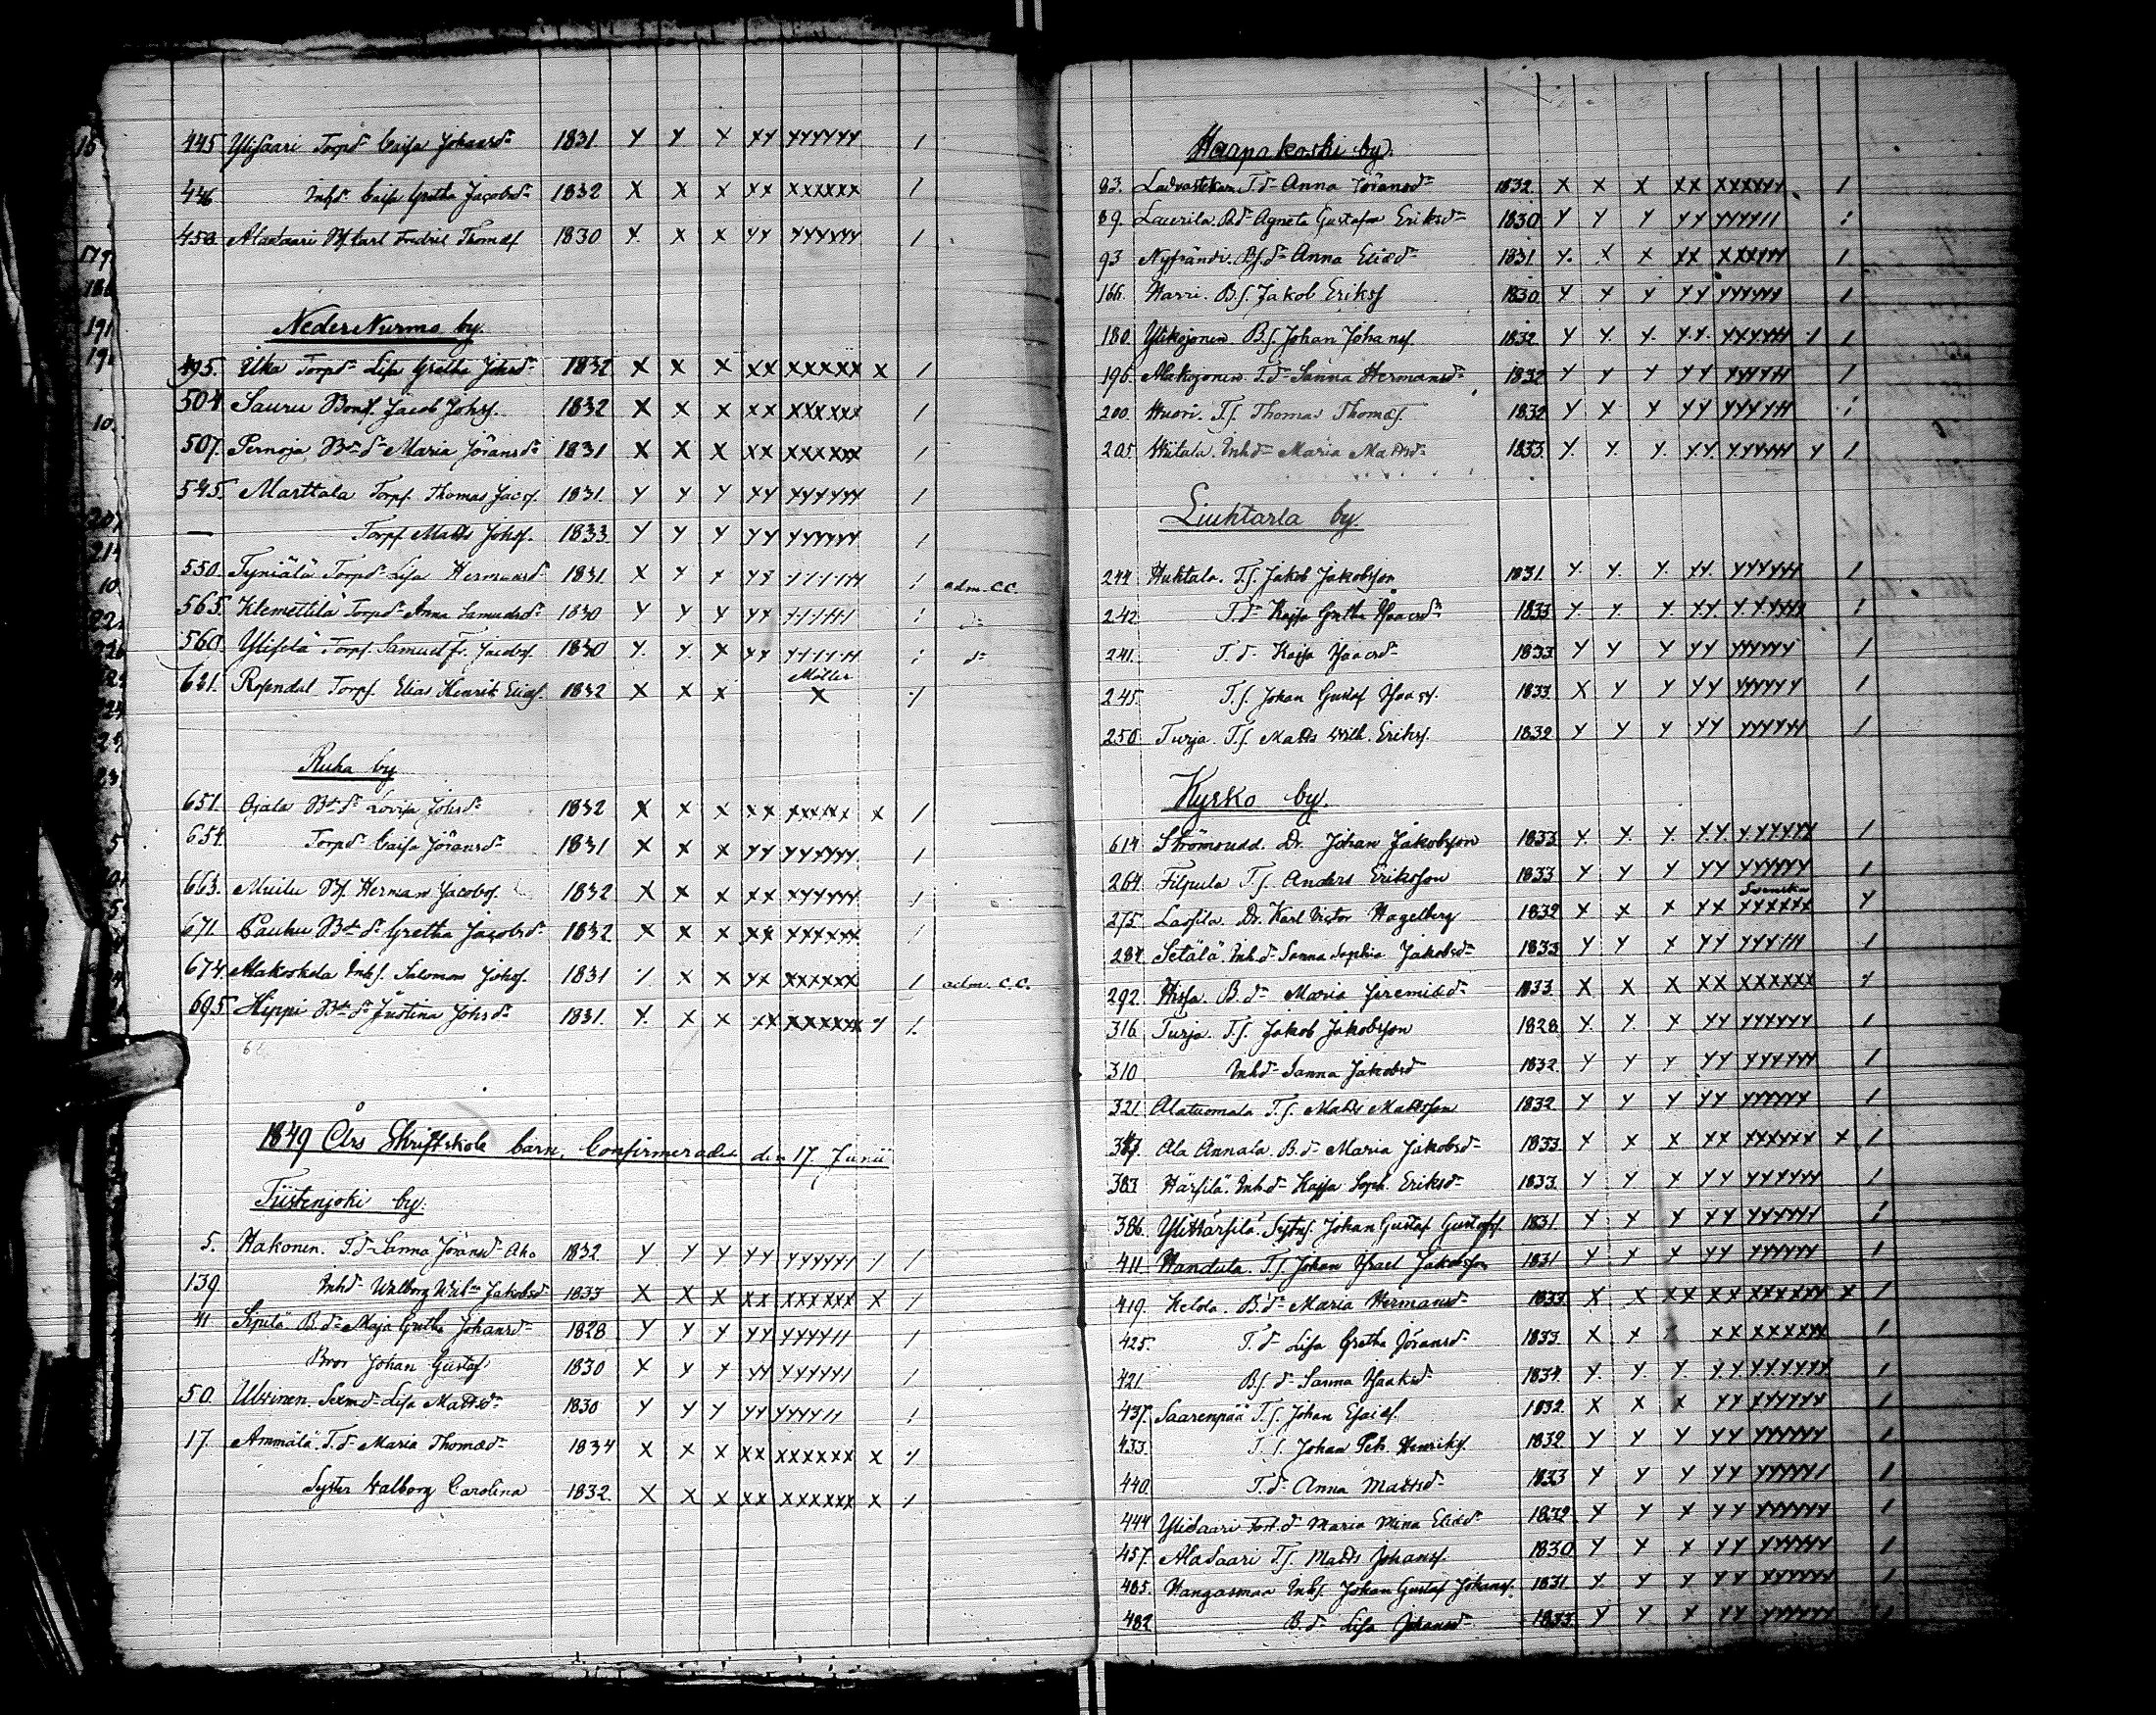 445 Ylisaari Torpd:r Caisa Johansd:r 1831 Y Y X XY YYYYYY /
446 Inhd:r Caisa Gretha Jacobsd:r 1832 X X X XX XXXXXX /
450 Alasaari Bf. Carl Fredric Thomæs. 1830 Y. X X YY YYYYYY /
Neder Nurmo by.
495. Uka Torpd:r Lisa Gretha Johsd:r 1832 X X X XX XXXXXX X /
504 Sauru Bonds. Jacob Johss. 1832 X X X XX XXXXXX /
507. Pernoja Bd:r Maria Jöransd:r 1831 X X X XX XXXXXX /
545. Marttala Torps. Thomas Jacss. 1831. Y Y Y YY YYYYYY /
— Torps. Matts Johss. 1833 Y Y Y YY YYYYYY /
550. Tyniälä Torpd:r Lisa Hermansd:r 1831 X Y Y YY YYYYYY / adm. C.C.
565. Klemettilä Torpd:r Anna Samuelsd:r 1830 Y Y Y YY YYYYYY / d:o
560. Ylisilä Torps. Samuel Fr. Jacobss. 1830 Y. Y. X YY YYYYYY / d:o
Möller
621. Rosendal Torps. Elias Henrik Eliass. 1832 X X X X /
Ruha by
651. Ojala Bd:r Lovisa Johsd:r 1832 X X X XX XXXXXX X /
654. Torpd:r Caisa Jöransd:r 1831 X X X YY YYYYYY /
663. Muilu Bs. Herman Jacobss. 1832 X X X XX XYYYYY /
671. Pauhu Bd:r Gretha Jacobsd:r 1832 X X X XX XXXXXX /
674. Alakoskela Inhs. Salomon Johss. 1831 / X X YX XXXXXX / adm. C.C.
695. Hippi Bd:r Justina Johsd:r 1831. Y. X X XX XXXXXX / /
1849 Års Skriftskole barn, Confirmerades den 17 Junii
Tiistenjoki by.
5. Hakonen. T.d:r Sanna Jöransd:r Aho 1832. Y Y Y YY YYYYYY / /
139. Inhd:r Walborg Wilh:a Jakobsd:r 1833 X X X XX XXXXXX X /
41. Sipilä B.d:r Maja Gretha Johansd:r 1828 Y Y Y YY YYYYYY /
Bror Johan Gustaf 1830 X Y Y YY YYYYYY /
50. Lisa Mattsd:r 1830 Y Y Y YY YYYYYY /
17. Ammälä. T.d:r Maria Thomæd:r 1834 X X X XX XXXXXX X /
Syster Walborg Carolina 1832. X X X XX XXXXXX X /
Haapakoski by.
83. T.d:r Anna Jöransd:r 1832 X X X XX XXXXYY /
89. Laurila. B.d:r Agneta Gustafva Eriksd:r 1830 Y Y Y YY YYYYYY /
93 Nyfrändi. Bs.d:r Anna Eliæd:r 1831 Y. X X XX XXXYYY /
166. Harri. B.s. Jakob Erikss. 1830 Y Y Y YY YYYYYY /
180. Ylikojonen B.s. Johan Johanss. 1832 Y Y. Y. Y.Y. YXYYYY / /
196. Alakojonen T.d:r Sanna Hermansd:r 1832 Y Y Y YY YYYYYY /
200. Huori. T.s. Thomas Thomæs. 1832 Y X Y YY YYYYYY /
205. Hiitala. Inhd:r Maria Mattsd:r 1833. Y. Y. Y. Y.Y. YYYYYY Y /
Liuhtarla by
244 Huhtala. T.s. Jakob Jakobsson 1831. Y Y. Y. YY. YYYYYY /
242 T.d:r Kajsa Gretha Isaacsd:r 1833 Y. Y. Y. YY. YYYYYY /
241. T.d:r Kajsa Isaacsd:r 1833 Y Y Y YY YYYYYY /
245. T.s. Johan Gustaf Isaacss. 1833. X Y Y YY YYYYYY /
250. Turja. T.s. Matts Wilh. Erikss. 1832 Y Y Y YY YYYYYY /
Kyrko by.
614 Strömsudd. Dr. Johan Jakobsson 1833 Y. Y. Y. Y.Y. YYYYYY /
264. Filpula T.s. Anders Eriksson 1833 Y Y Y YY YYYYYY /
Svenska
275. Lassila. Dr. Karl Victor Hagelberg 1832 X X X YX YYXXXX Y
284 Setälä. Inh.d:r Sanna Sophia Jakobsd:r 1833 Y Y X YY YYYYYY /
292. Hissa. B.d:r Maria Jeremiæd:r 1833 X X X XX XXXXXX /
316. Turja. T.s. Jakob Jakobsson 1828 Y. Y. X YY YYYYYY /
310 Inhd:r Sanna Jakobsd:r 1832. Y Y Y YY YYYYYY /
321. Alatuomala T.s. Matts Mattsson 1832 Y Y Y YY YYYYYY /
347. Ala Annala. B.d:r Maria Jakobsd:r 1833. Y X X YX YYYYYY X /
383. Härsilä. Inh.d:r Kajsa Soph. Eriksd:r 1833. Y Y X YY YYYYYY /
386. Ylihärsilä. Johan Gustaf Gustafss. 1831. Y Y Y YY YYYYYY /
411. Handula. T.s. Johan Israel Jakobsson 1831 Y Y X YY YYYYYY /
419. Helda. B.d:r Maria Hermansd:r 1833. X X XX XX XXXXXX X /
425. T.d:r Lisa Gretha Jöransd:r 1833. X X XX XXXXXX /
421. Bs.d:r Sanna Isaksd:r 1834. Y. Y. Y. Y.Y. YYYYYY /
437. Saarenpää T.s. Johan Esaiæs. 1832. X X X YY XYYYYY /
433. T.s. Johan Petr. Henrikss. 1832. Y Y Y YY YYYYYY /
440. T.d:r Anna Mattsd:r 1833 Y Y Y YY YYYYYY /
444 Ylisaari Torp.d:r Maria Mina Eliæd:r 1832. Y Y X YY YYYYYY /
457. Alasaari T.s. Matts Johanss. 1830 Y Y X YY YYYYYY /
485. Hangasmaa Inhs. Johan Gustaf Johanss. 1831. Y. Y Y YY YYYYYY /
482 B.d:r Lisa Johansd:r 1833. Y Y X YY YYYYYY /